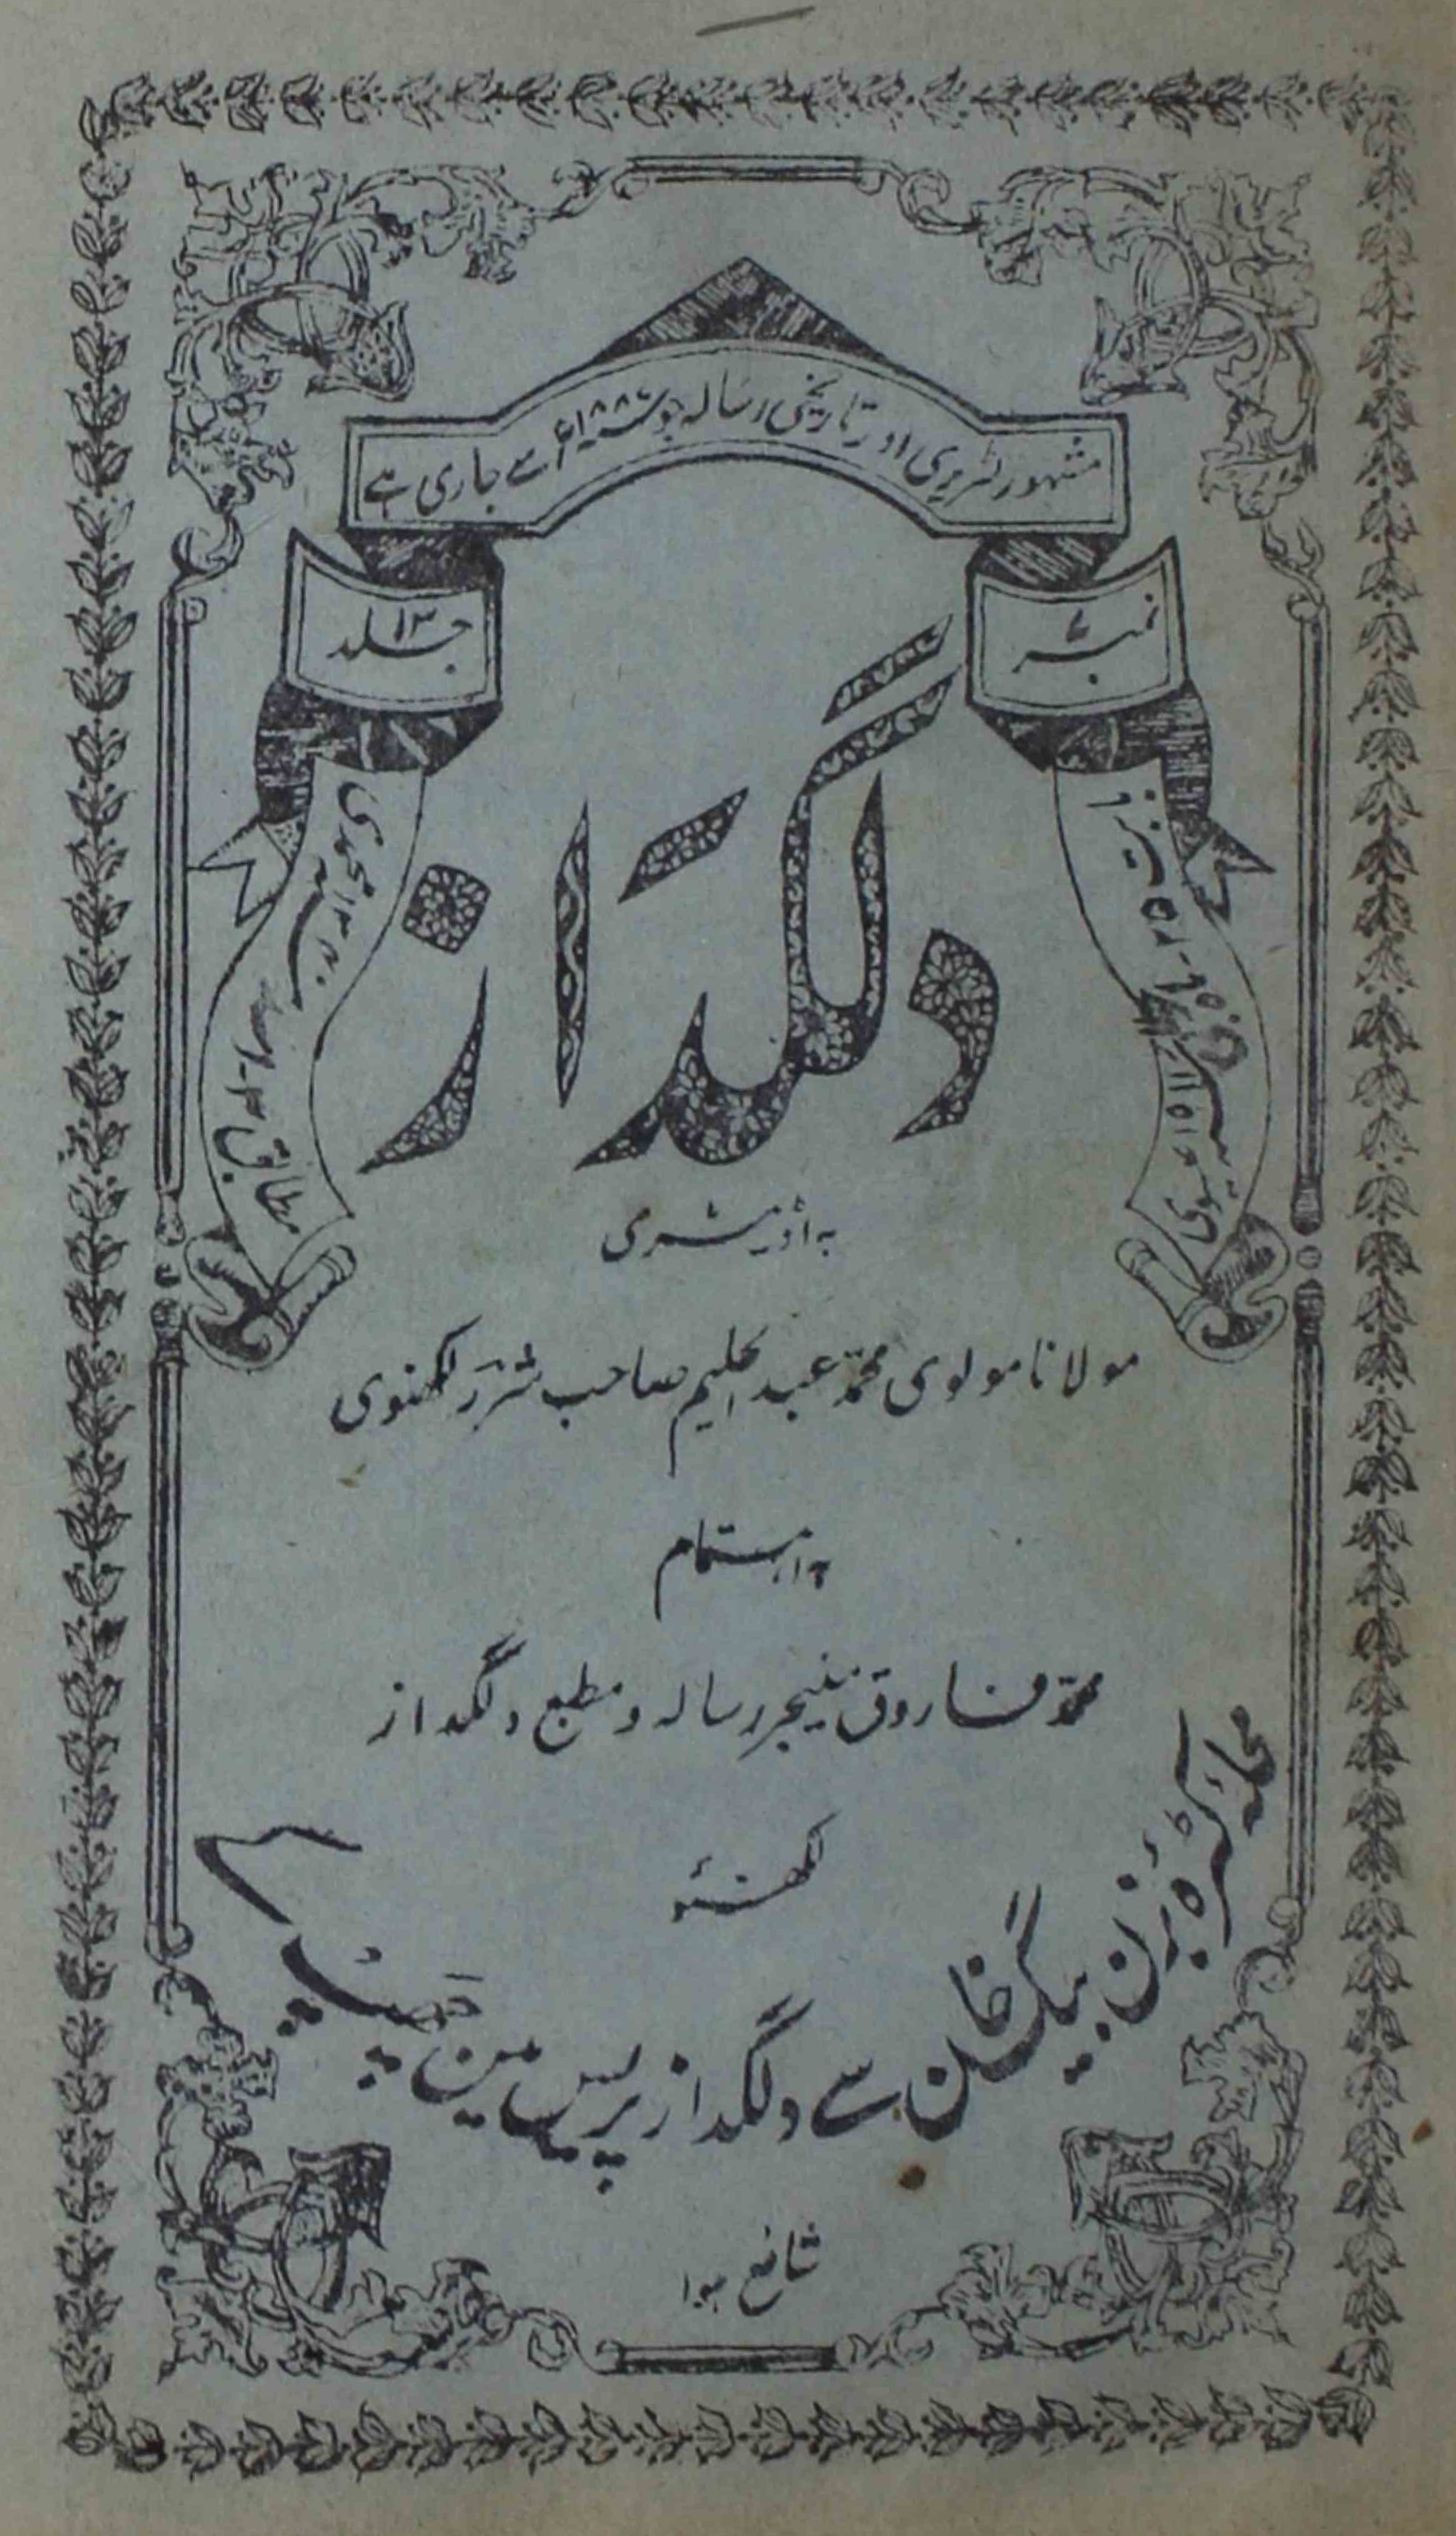 مشہور لٹریری اور تاریخی رسالہ جو ۱۸۸۶ء سے جاری ہے
نمبر ۷
جلد ۱۳
دلگداز
بہ اڈیٹری
مولانا مولوی محمد عبدالحلیم صاحب شرر لکھنوی
بہ اہتمام
محمد فاروق منیجر رسالہ و مطبع دلگداز
لکھنؤ
محلہ کٹرہ بزن بیگ خان سے دلگداز پریس مین چھپ کے
شائع ہوا